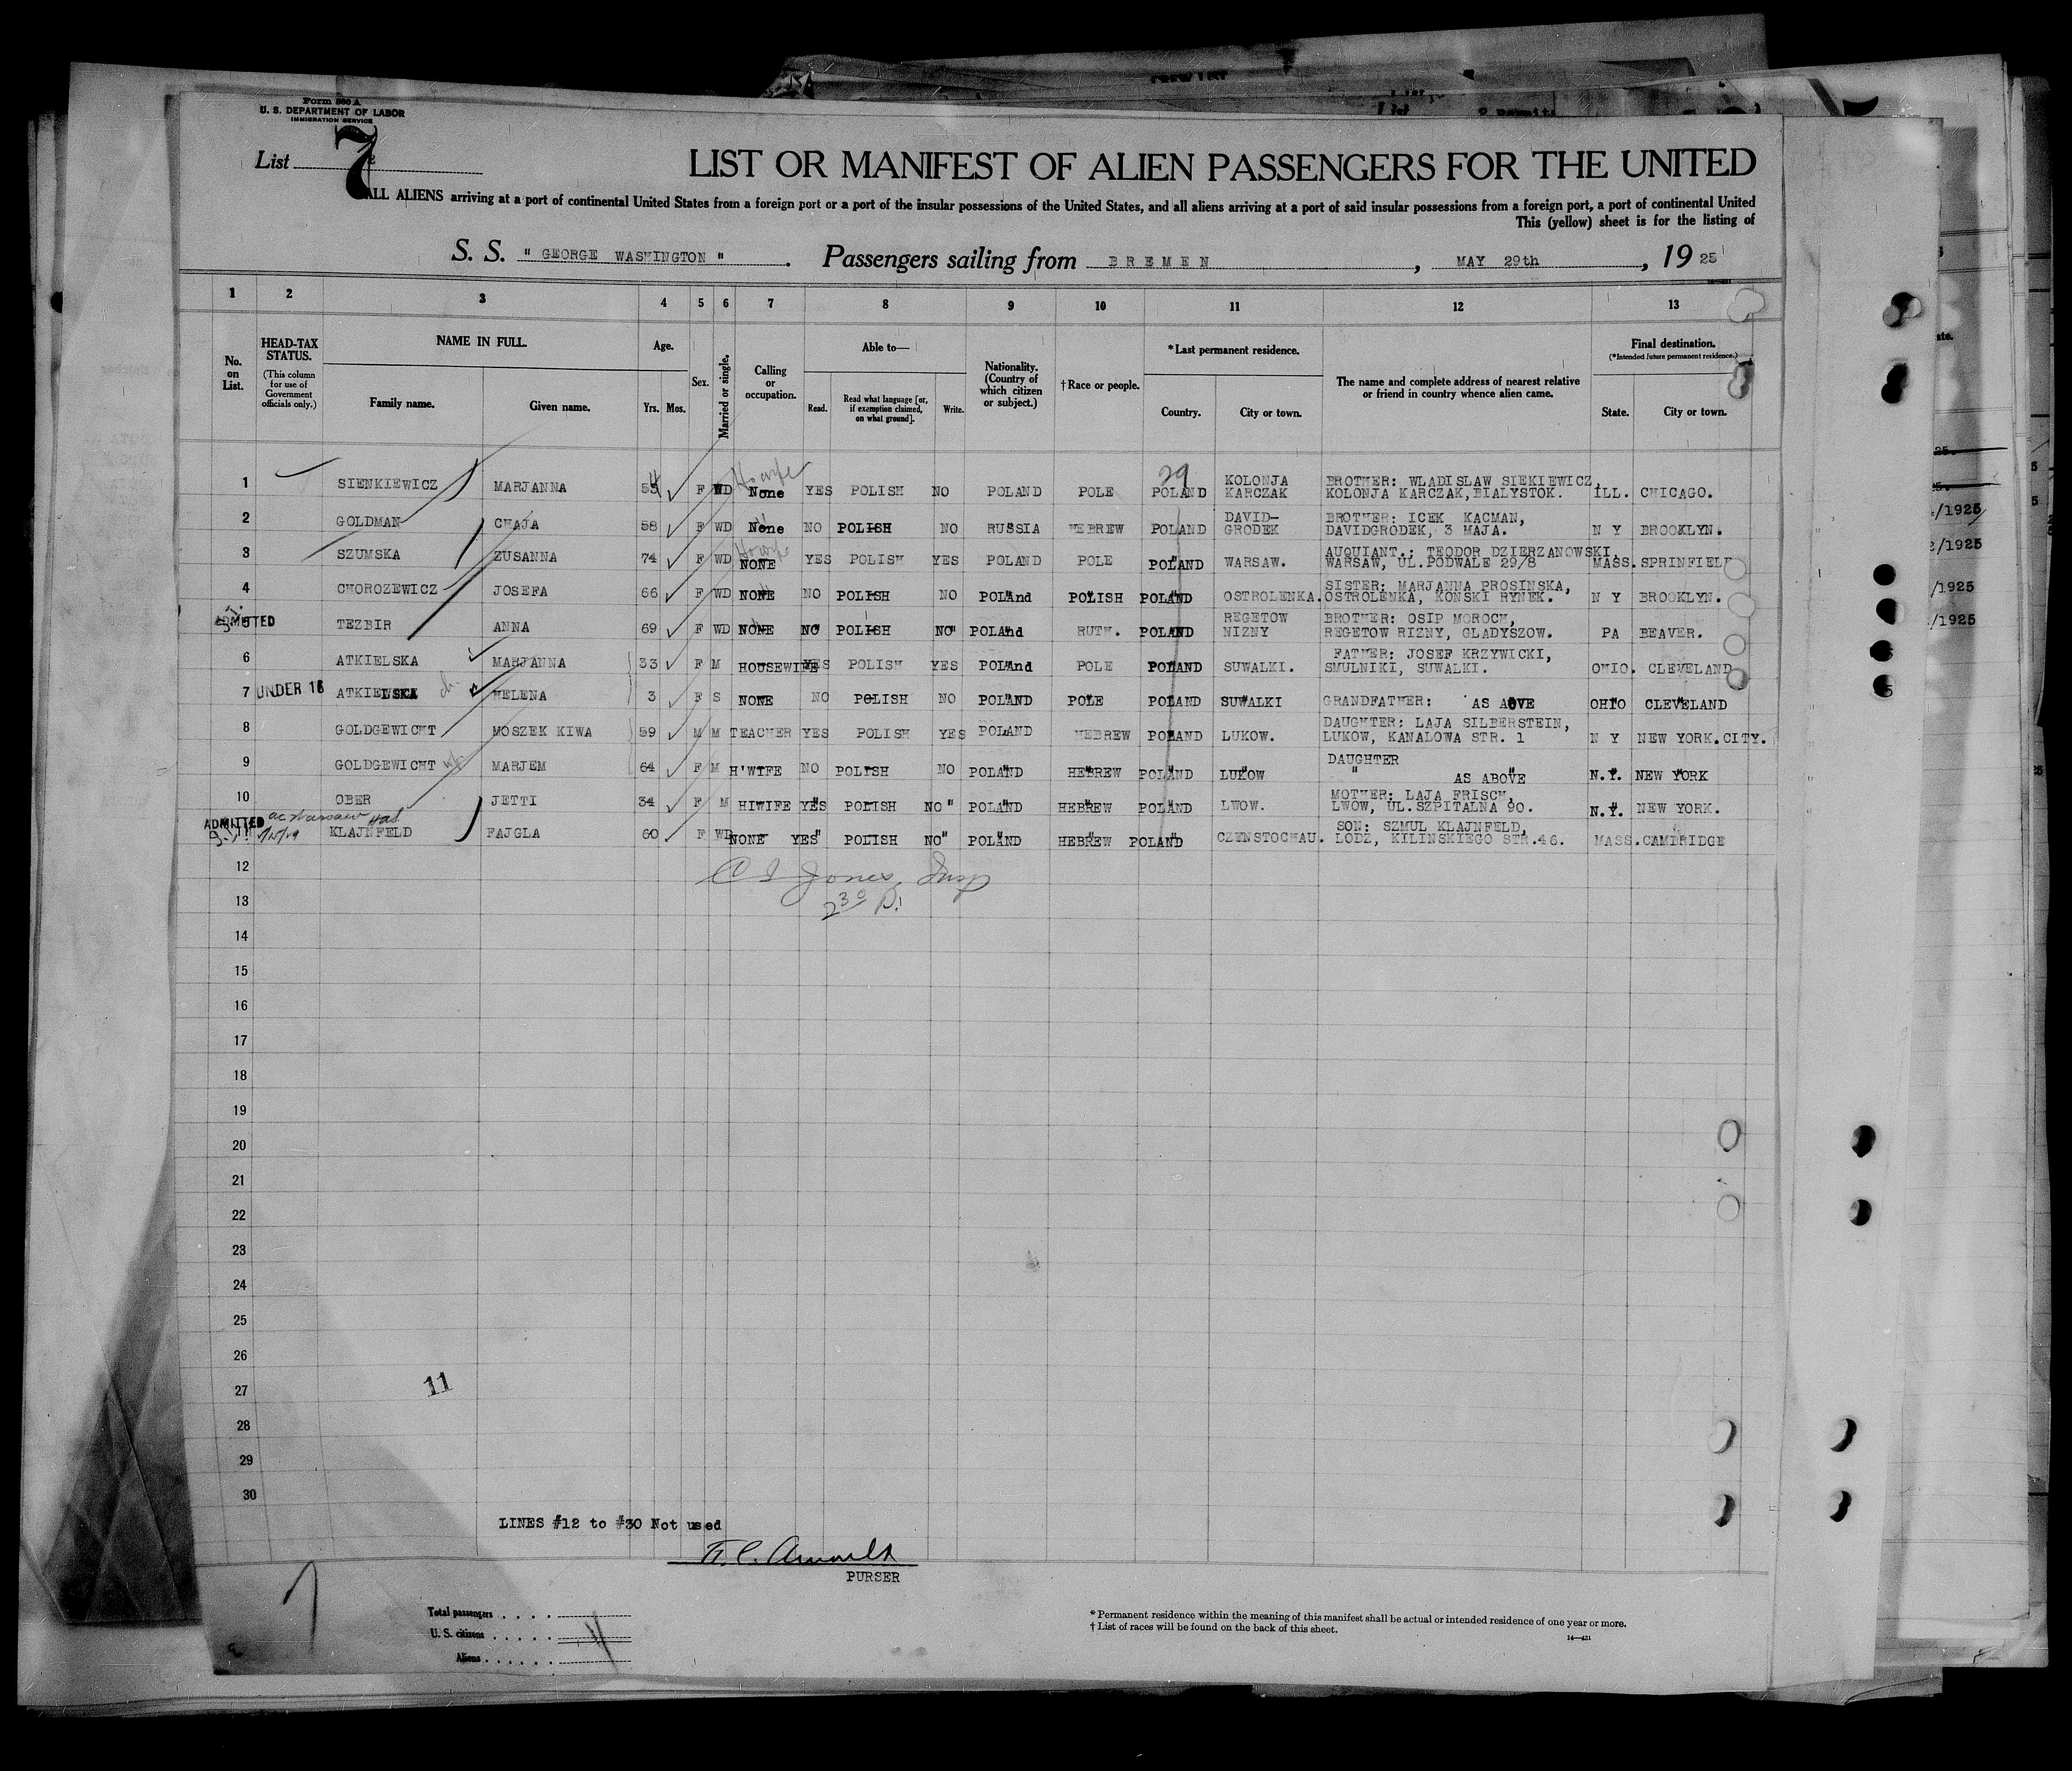 Form 500 A
U. S. DEPARTMENT OF LABOR
IMMIGRATION SERVICE
List 7
LIST OR MANIFEST OF ALIEN PASSENGERS FOR THE UNITED
ALL ALIENS arriving at a port of continental United States from a foreign port or a port of the insular possessions of the United States, and all aliens arriving at a port of said insular possessions from a foreign port, a port of continental United
This (yellow) sheet is for the listing of
S. S. " GEORGE WASHINGTON ". Passengers sailing from BREMEN, MAY 29th, 19 25
1 2 3 4 5 6 7 8 9 10 11 12 13
No. on List. HEAD-TAX STATUS. (This column for use of Government officials only.) NAME IN FULL. Family name. Given name. Age. Yrs. Mos. Sex. Married or single. Calling or occupation. Able to— Read. Read what language [or, if exemption claimed, on what ground]. Write. Nationality. (Country of which citizen or subject.) †Race or people. *Last permanent residence. Country. City or town. The name and complete address of nearest relative or friend in country whence alien came. Final destination. (*Intended future permanent residence.) State. City or town.
29
1 SIENKIEWICZ MARJANNA F WD None YES POLISH NO POLAND POLE POLAND KOLONJA KARCZAK BROTHER: WLADISLAW SIEKIEWICZ, KOLONJA KARCZAK, BIALYSTOK. ILL. CHICAGO.
2 GOLDMAN CHAJA 58 F WD None NO POLISH NO RUSSIA HEBREW POLAND DAVID-GRODEK BROTHER: ICEK KACMAN, DAVIDGRODEK, 3 MAJA. N Y BROOKLYN.
3 SZUMSKA ZUSANNA 74 F WD NONE YES POLISH YES POLAND POLE POLAND WARSAW. AUQUIANT.: TEODOR DZIERZANOWSKI, WARSAW, UL.PODWALE 29/8 MASS. SPRINFIELD
4 CHOROZEWICZ JOSEFA 66 F WD NONE NO POLISH NO POLAnd POLISH POLAND OSTROLENKA. SISTER: MARJANNA PROSINSKA, OSTROLENKA, KONSKI RYNEK. N Y BROOKLYN.
ADMITTED
5 TEZBIR ANNA 69 F WD NONE NO POLISH NO POLAnd RUTH. POLAND REGETOW NIZNY BROTHER: OSIP MOROCH, REGETOW RIZNY, GLADYSZOW. PA BEAVER.
6 ATKIELSKA MARJANNA 33 F M HOUSEWIFE YES POLISH YES POLAnd POLE POLAND SUWALKI. FATHER: JOSEF KRZYWICKI, SMULNIKI, SUWALKI. OHIO. CLEVELAND
7 UNDER 16 ATKIELSKA HELENA 3 F S NONE NO POLISH NO POLAND POLE POLAND SUWALKI GRANDFATHER: AS ABOVE OHIO CLEVELAND
8 GOLDGEWICHT MOSZEK KIWA 59 M M TEACHER YES POLISH YES POLAND HEBREW POLAND LUKOW. DAUGHTER: LAJA SILBERSTEIN, LUKOW, KANALOWA STR. 1 N Y NEW YORK.CITY.
9 GOLDGEWICHT MARJEM 64 F M H'WIFE NO POLISH NO POLAND HEBREW POLAND LUKOW DAUGHTER " AS ABOVE N.Y. NEW YORK
10 OBER JETTI 34 F M HIWIFE YES POLISH NO POLAND HEBREW POLAND LWOW. MOTHER: LAJA FRISCH, LWOW, UL.SZPITALNA 90. N.Y. NEW YORK.
ADMITTED
11 KLAJNFELD FAJGLA 60 F WD NONE YES POLISH NO POLAND HEBREW POLAND CZENSTOCHAU. SON: SZMUL KLAJNFELD, LODZ, KILINSKIEGO STR.46. MASS. CAMBRIDGE
12
C S Jones Insp
13
14
15
16
17
18
19
20
21
22
23
24
25
26
27
11
28
29
30
LINES #12 to #30 Not used
PURSER
Total passengers
U. S. citizens
Aliens
* Permanent residence within the meaning of this manifest shall be actual or intended residence of one year or more.
† List of races will be found on the back of this sheet.
14—431